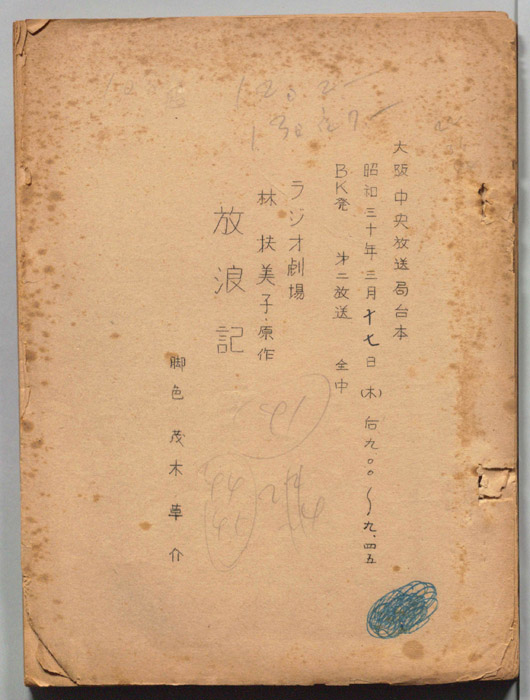 大阪中央放送局台本
昭和三十年三月十七日(木) 后九.〇〇〜九.四五
BK発 第二放送 全中
ラジオ劇場
林扶美子・原作
放浪記
脚色 茂木草介